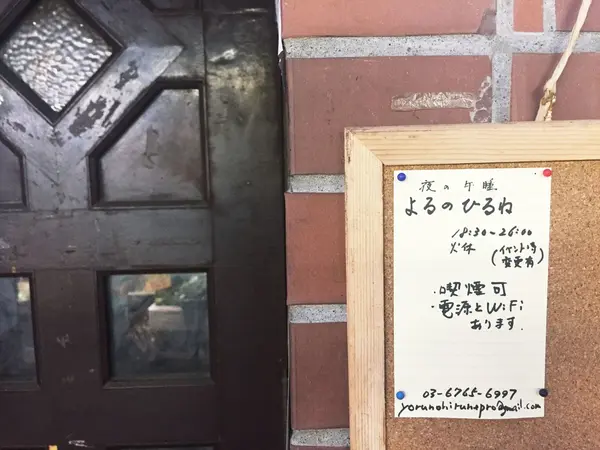 夜の午睡
よるのひるね
18:30~26:00
火休 (イベント時
変更有)
・喫煙可
・電源とWiFi
あります.
03-6765-6997
yorunohirunepro@gmail.com